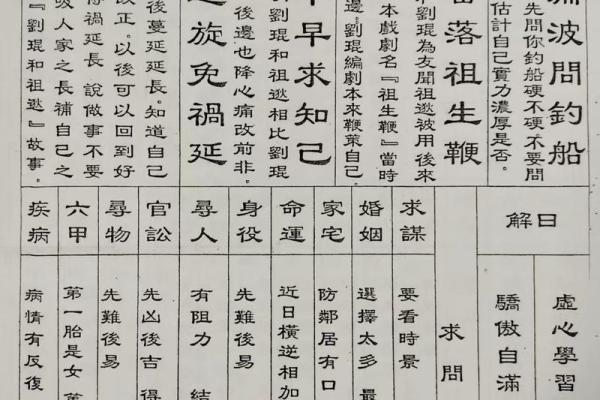 波問釣船
先問你釣船硬不硬不要問
估計自己實力濃厚是否。
落祖生鞭
劉琨為友聞祖逖被用後來
本戲劇名『祖生鞭』當時
邊。劉琨編劇本來鞭策自己
早求知己
劉琨和祖逖相比劉琨
後邊也降心痛改前非。
旋免禍延
後蔓延延長。知道自己
改正。以後可以回到好
禍延長 說做事不要
吸人家之長補自己之
『劉琨和祖逖』故事。
日解
虛心學習
驕傲自滿
求問
求謀
要看時景
婚姻
選擇太多 最
家宅
防鄰居有口
命運
近日橫逆相加
身役
先難後易
尋人
有阻力 結
官訟
先凶後吉 得
尋物
先難後易
六甲
第一胎是女 第
疾病
病情有反復